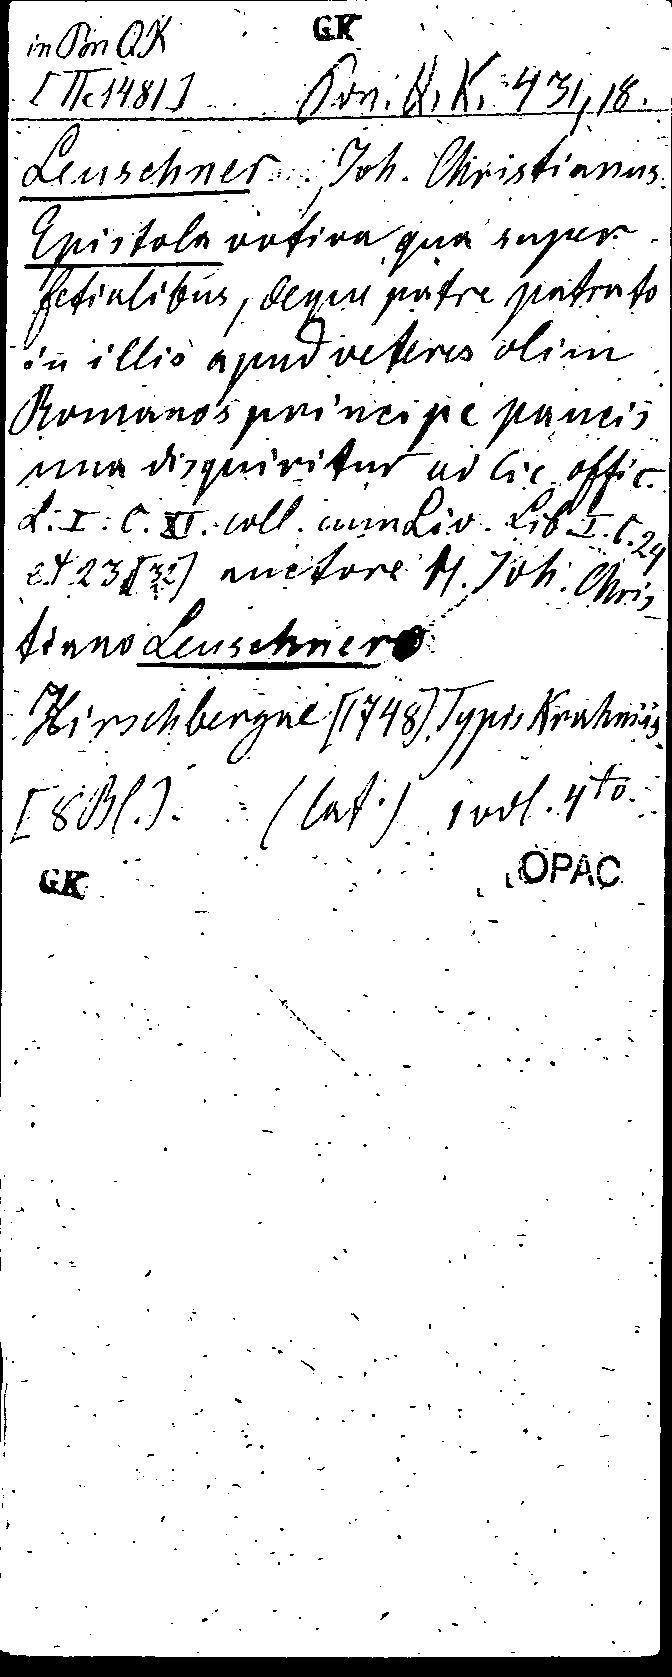 in Bn QK
GK
[IIc1481]
Bon. Q. K. 431,18.
Leuschner, Joh. Christianus.
Epistola votiva qua super
fetialibus, deque patre patrato
in illis apud veteres olim
Romanos principe paucis
una disquiritur ad Cic. offic.
L. I. C. XI. coll. cum Liv. Lib. I. C. 24
et 23 [32] auctore M. Joh. Chris
tiano Leuschnero
Hirschbergae [1748] Typis Krahnii
[8 Bl.]. (lat.) 1 vol. 4to.
GK
OPAC